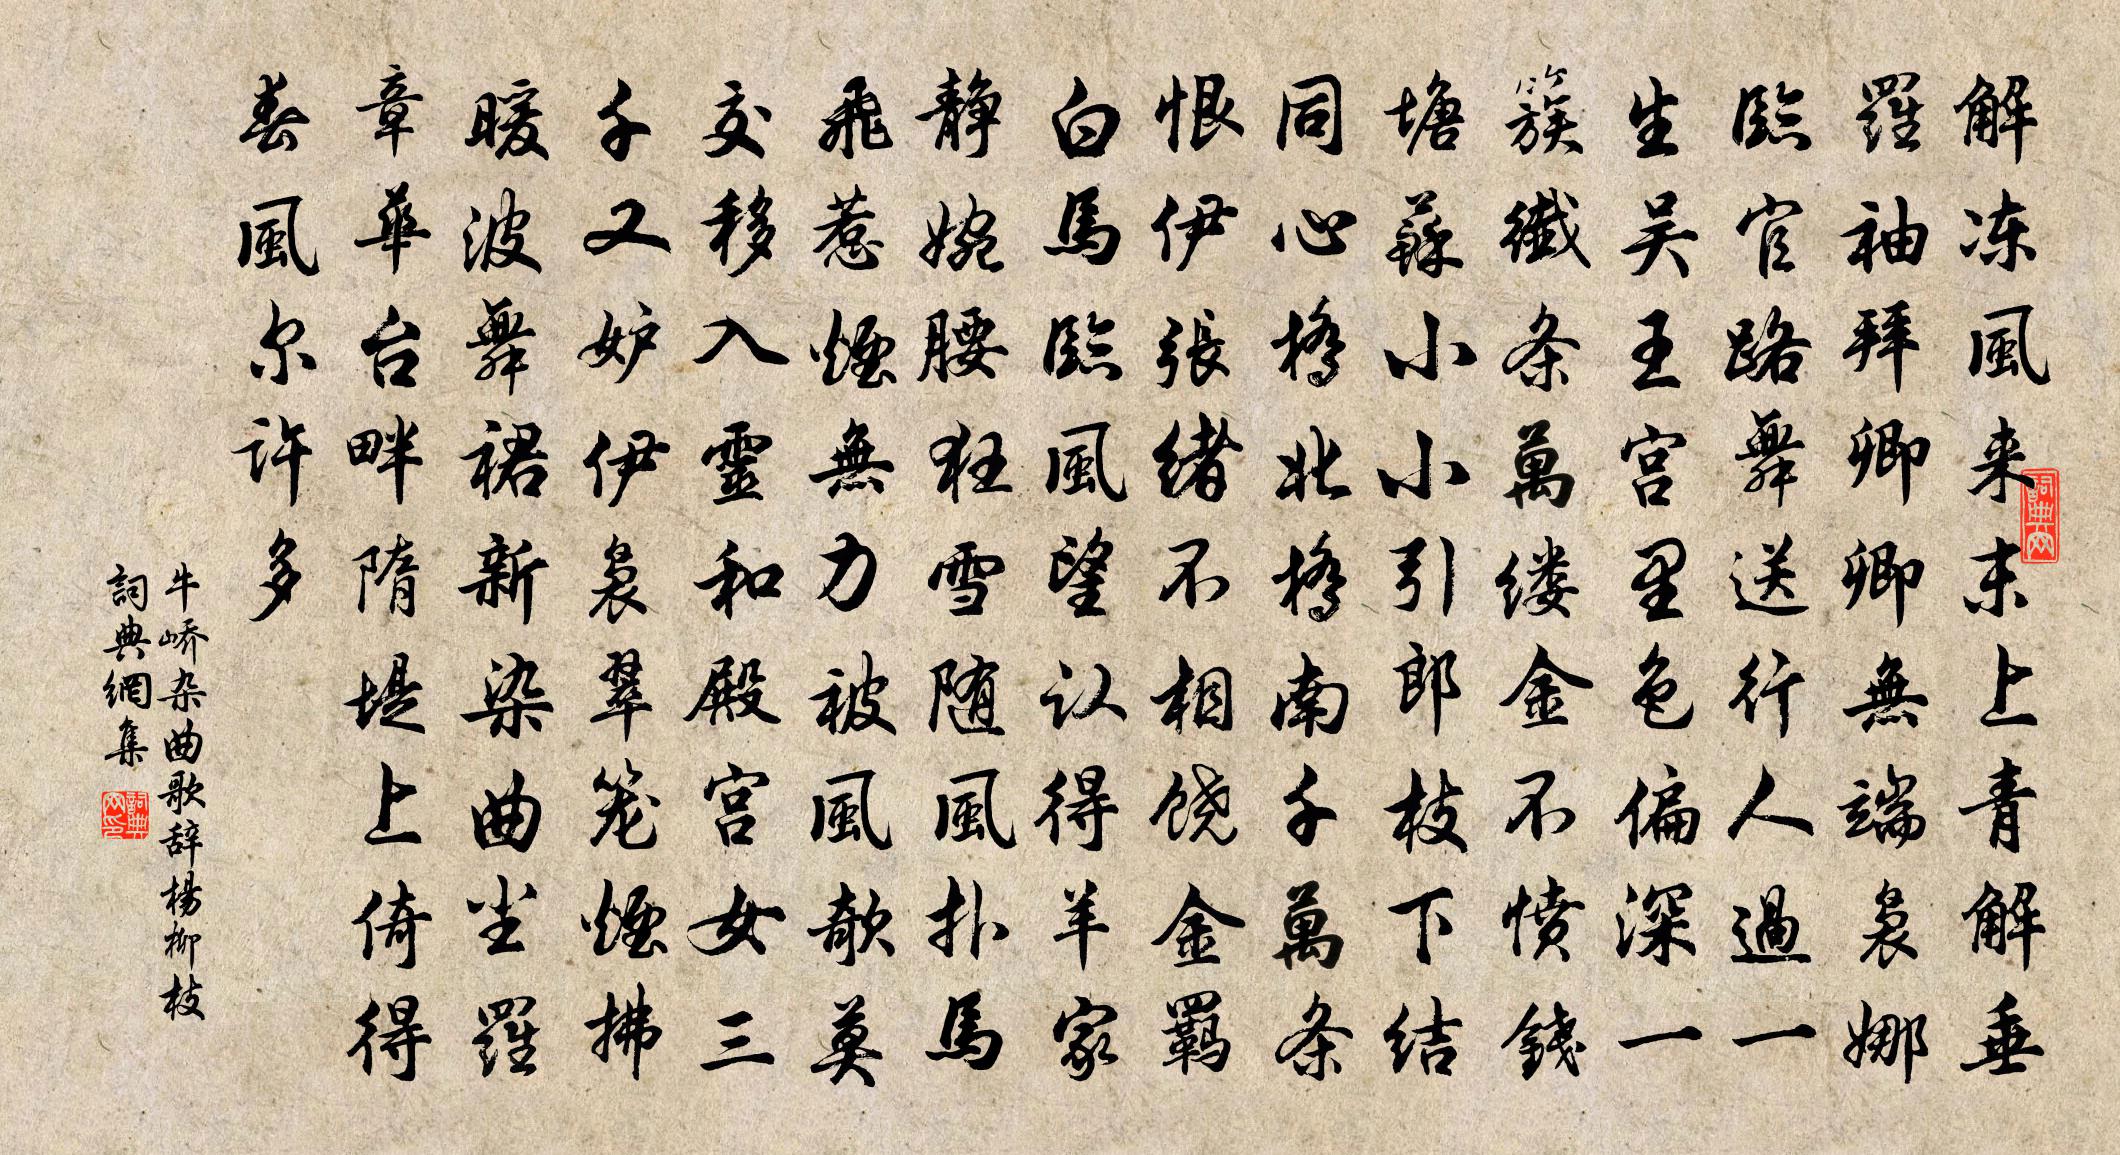 解冻風来末上青解垂
羅袖拜卿卿無端裊娜
臨官路舞送行人過一
生吴王宫里色偏深一
簇纖条萬缕金不愤錢
塘蘇小小引郎枝下结
同心橋北橋南千萬条
恨伊張绪不相饶金羁
白馬臨風望认得羊家
静婉腰狂雪随風扑馬
飛惹煙無力被風欹莫
交移入靈和殿宫女三
千又妒伊裊翠笼煙拂
暖波舞裙新染曲尘羅
章華台畔隋堤上倚得
春風尔许多
牛峤杂曲歌辞楊柳枝
詞典網集
詞典网
詞典网印